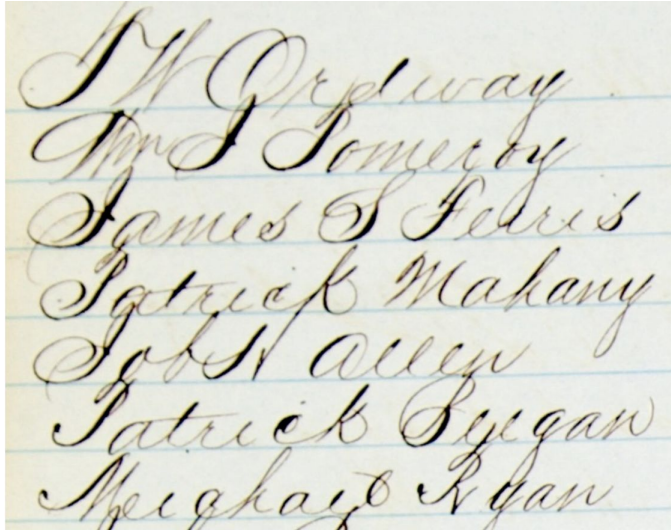 T W Ordway
Wm J Pomeroy
James S Ferris
Patrick Mahany
Allen
Patrick
Meichael Ryan